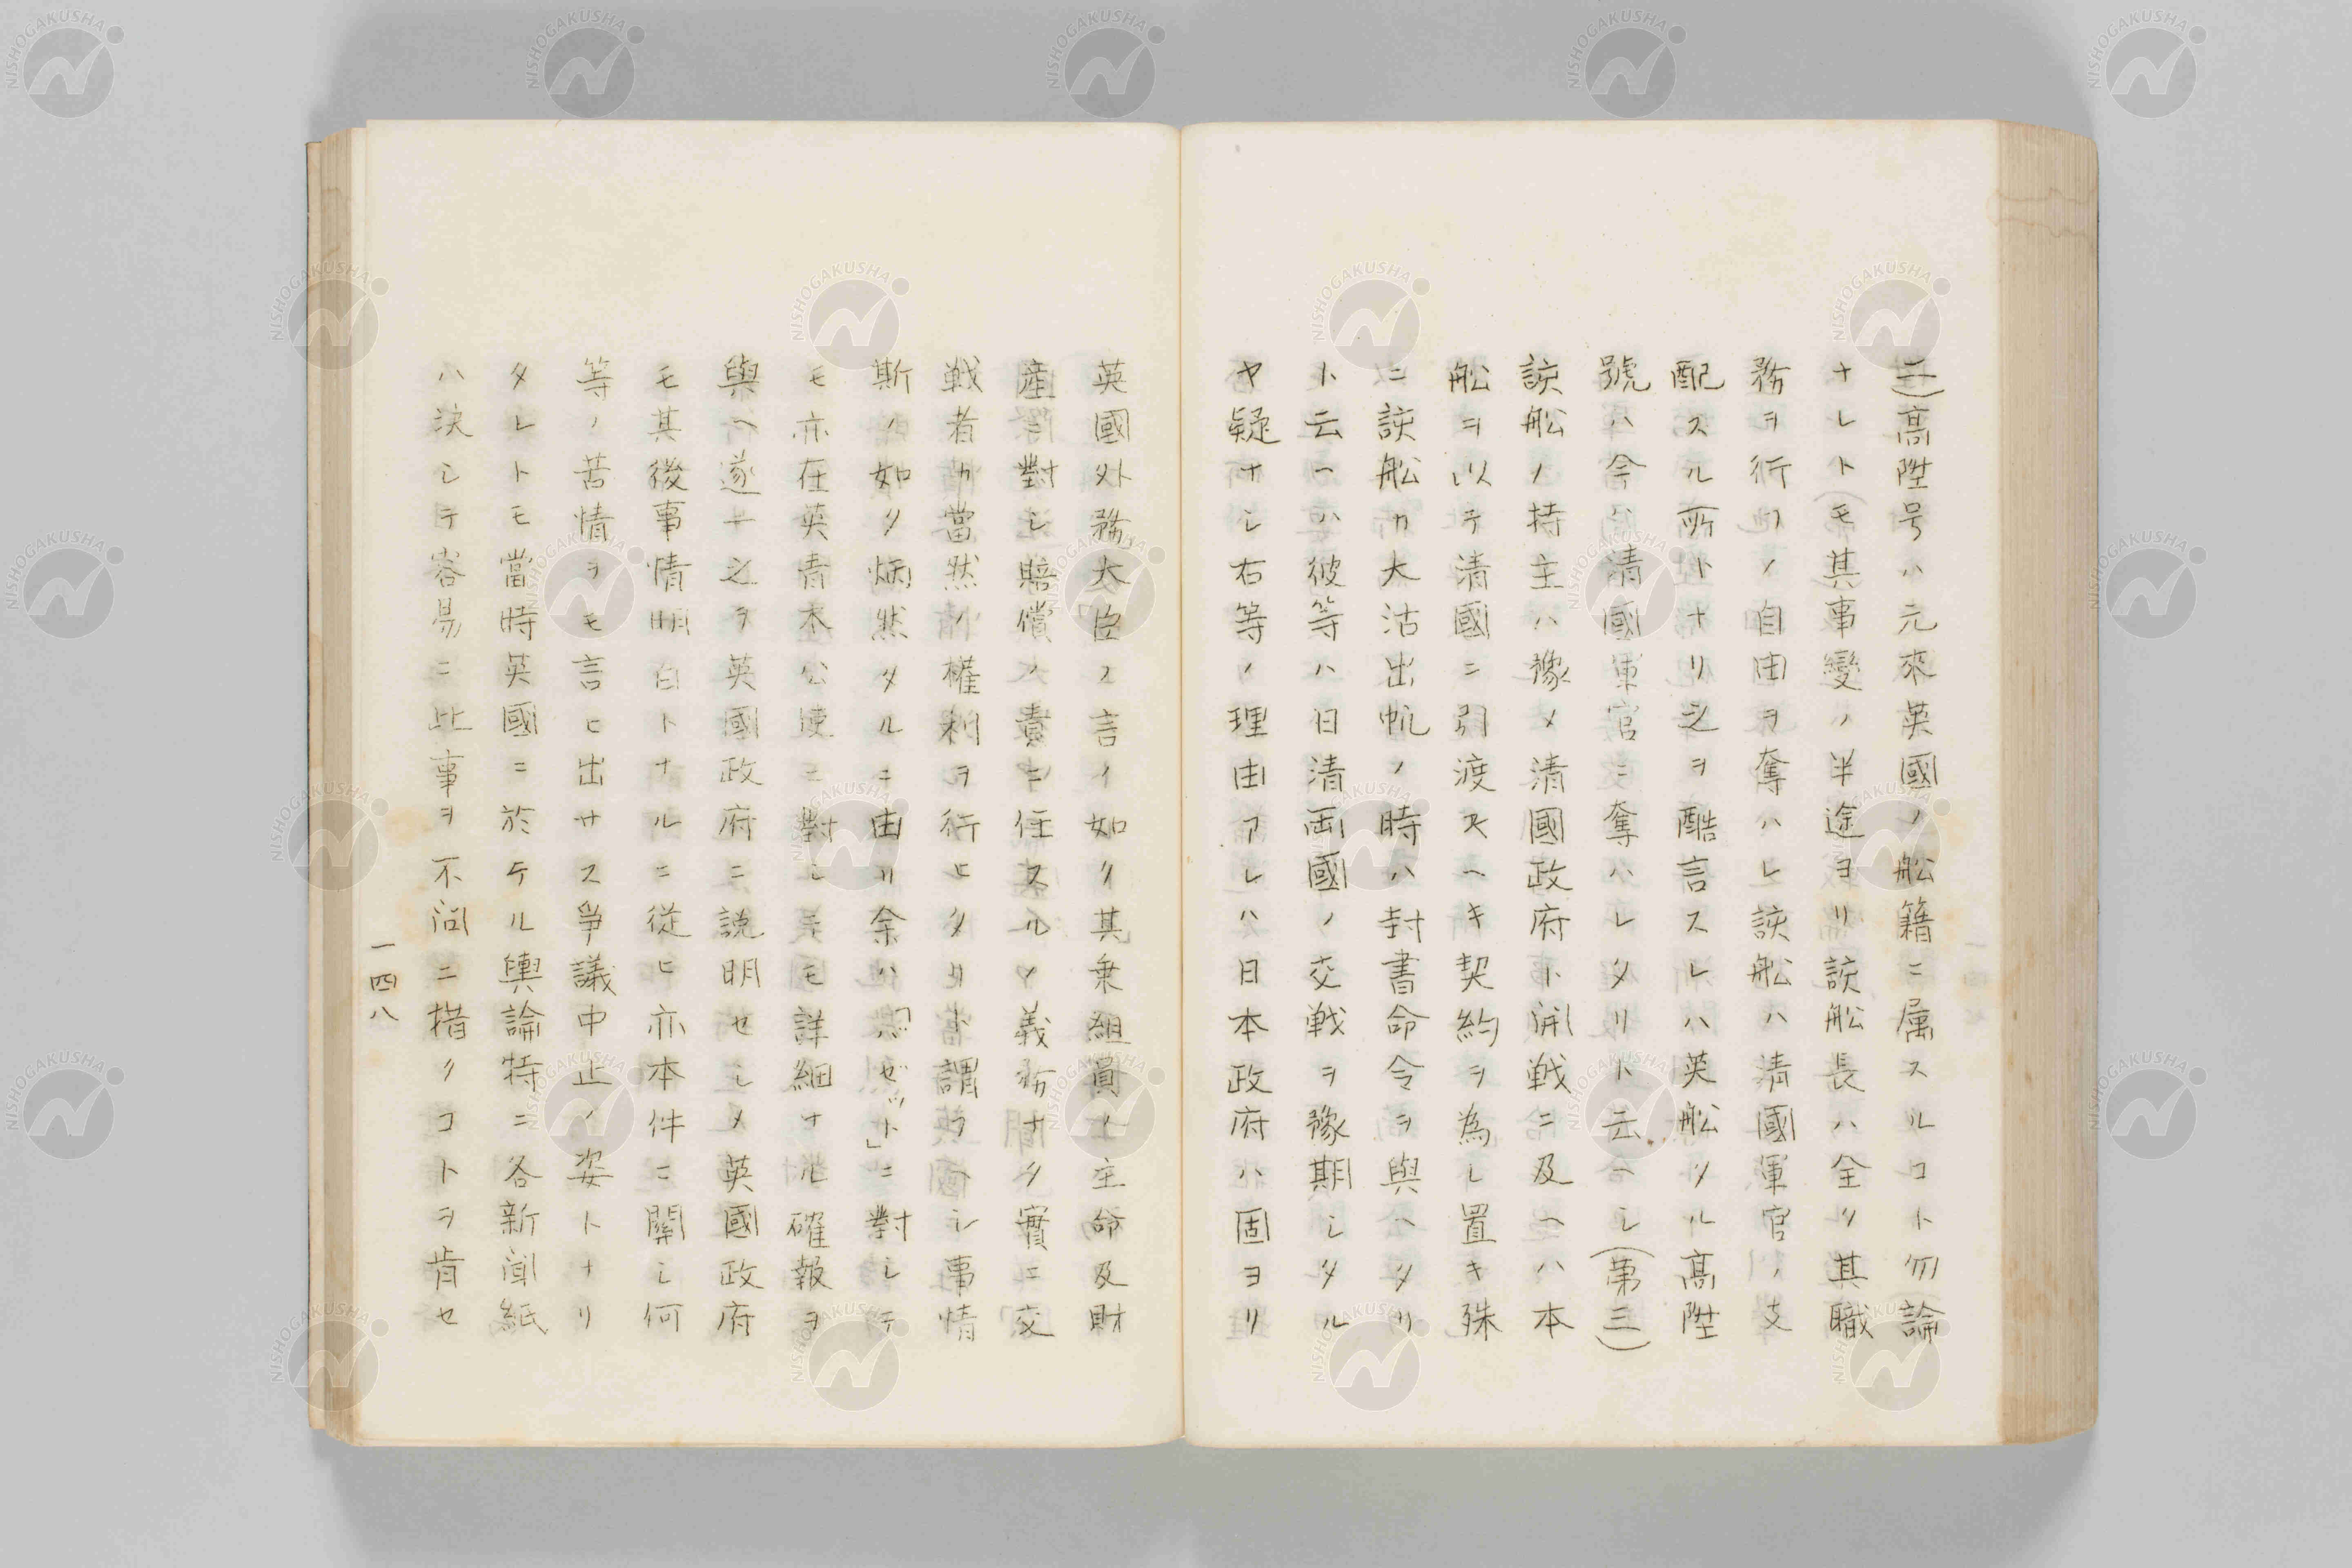 二)高陞号ハ元來英國ノ船籍ニ属スルコト勿論
ナレトモ其事變ノ半途ヨリ該船長ハ全ク其職
務ヲ行フノ自由ヲ奪ハレ該船ハ清國軍官ノ支
配スル所トナリ之ヲ酷言スレハ英船タル高陞
號ハ今ハ清國軍官ニ奪ハレタリト云ヘシ(第三)
該船ノ持主ハ豫メ清國政府ト開戦ニ及ヘハ本
船ヲ以テ清國ニ引渡スヘキ契約ヲ為し置キ殊
ニ該船カ大沽出帆ノ時ハ封書命令ヲ與ヘタリ
ト云ヘハ彼等ハ日清両國ノ交戦ヲ豫期シタル
ヤ疑ナシ右等ノ理由アレハ日本政府ハ固ヨリ
英國外務大臣ノ言ノ如ク其乗組員ノ生命及財
産ニ對シ賠償ノ責ニ任スルノ義務ナク實ニ交
戦者カ當然ノ權利ヲ行ヒタリト謂フヘシ事情
斯ノ如ク炳然タルニ由リ余ハ「ぱぜット」ニ對シテ
モ亦在英青木公使ニ對シテモ詳細ナル確報ヲ
與ヘ遂ニ之ヲ英國政府ニ説明セシメ英國政府
モ其後事情明白トナルニ從ヒ亦本件ニ關シ何
等ノ苦情ヲモ言ヒ出サス爭議中止ノ姿トナリ
タレトモ當時英國ニ於ケル輿論特ニ各新聞紙
ハ決シテ容易ニ此事ヲ不問ニ措クコトヲ肯セ
一四八
NISHOGAKUSHA